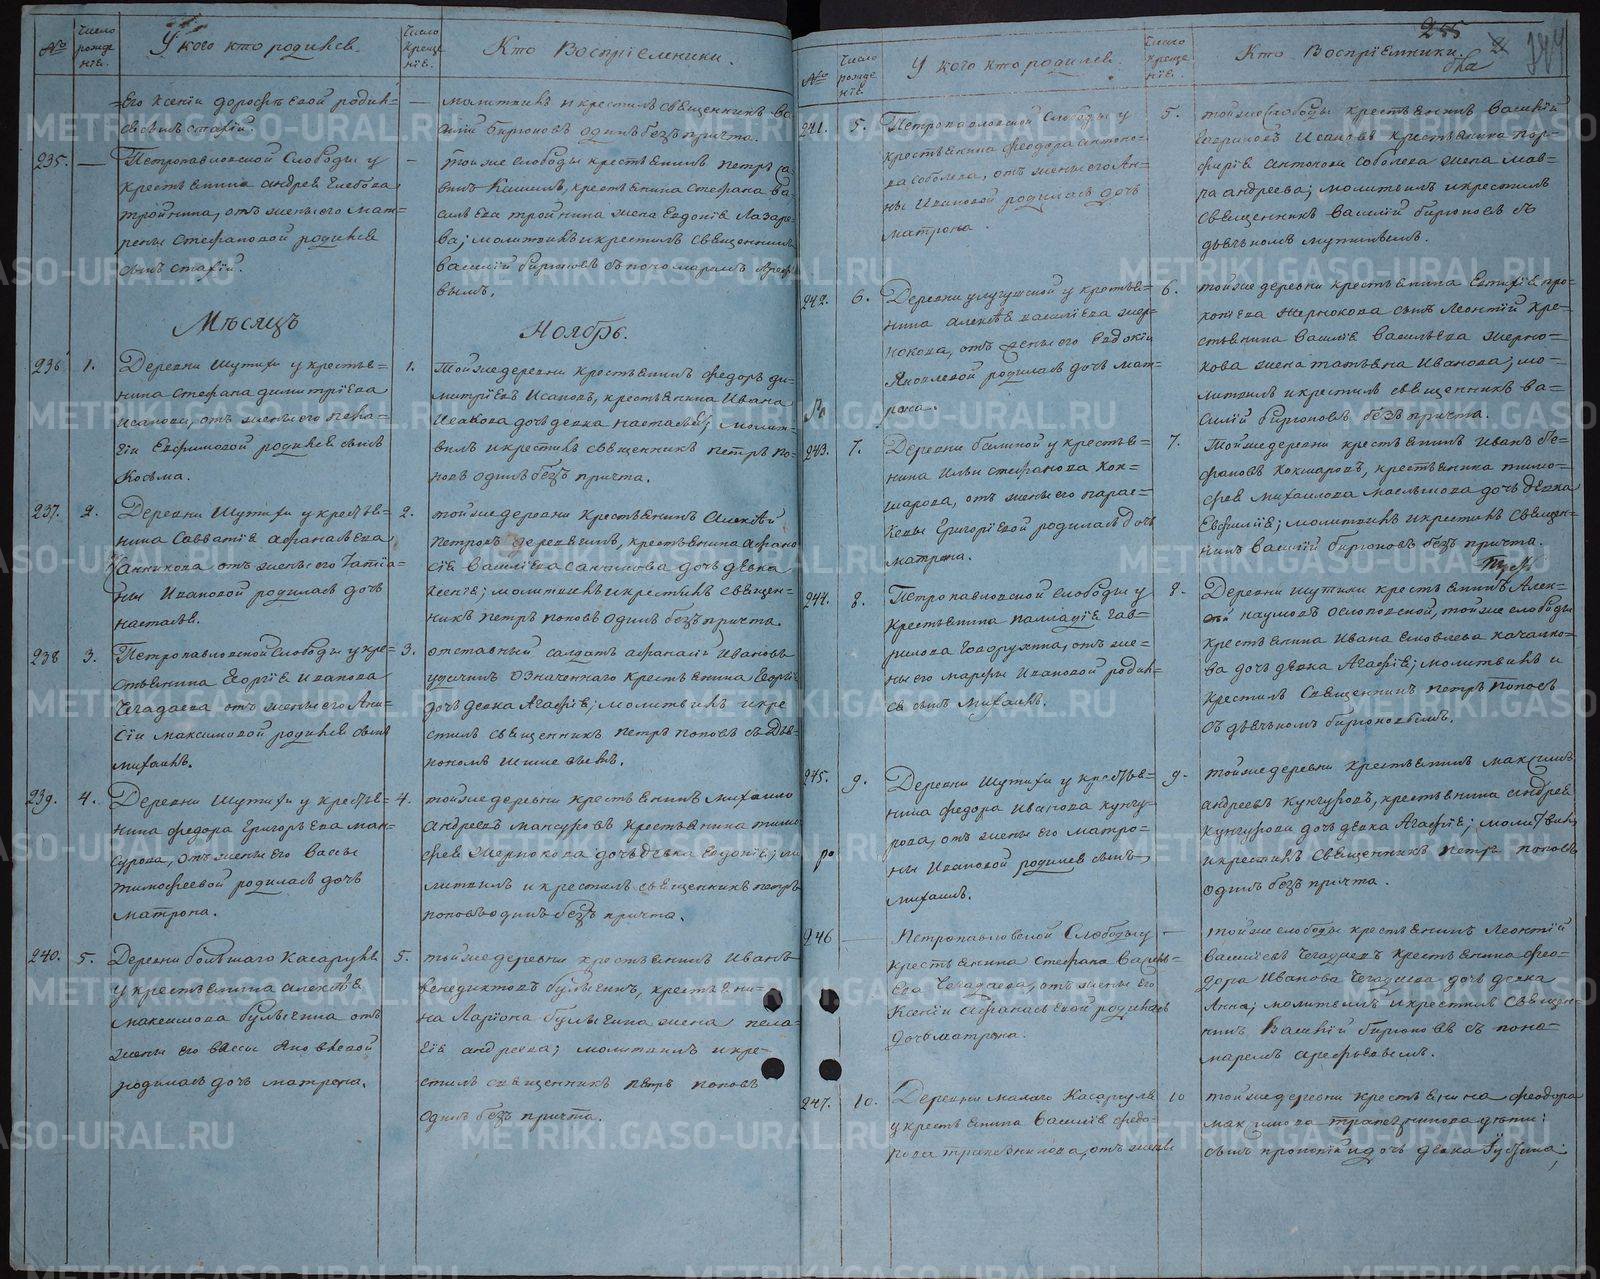 №
Число рожденїе.
У кого кто родился.
Число крещенїе.
Кто Воспрїемники.
Его Ксенїи дорофеевой родил=
ся сынъ
молитвилъ и крестилъ священникъ Ва
силїй Бирюковъ одинъ безъ причта.
235.
Петропавловской Слободы у
крестьянина андрея Глебова
тройнина, отъ жены его Мат=
рены Стефановой родился
сынъ
тойже слободы крестьянинъ Петръ
крестьянина Стефана Ва
сильева тройнина жена Евдокїя Лазаре=
ва; молитвилъ и крестилъ священникъ
Василїй Бирюковъ съ пономаремъ Арефь
вымъ.
Мѣсяцъ
Ноябрь.
236
1.
Деревни Шутихи у крестья=
нина Стефана димитрїева
Исакова, отъ жены его Пела=
гїи Евфимовой родился сынъ
Косьма.
1.
Тойже деревни крестьянинъ федоръ ди=
митрїевъ Исаковъ, крестьянина Ивана
Исакова дочь девка настасья; молит=
вилъ и крестилъ священникъ петръ по=
повъ одинъ безъ причта.
237.
2.
Деревни Шутихи у крестья=
нина Савватїя афанасьева
Санникова отъ жены его Татїа=
ны Ивановой родилась дочь
настасья.
2.
тойже деревни крестьянинъ Алексѣй
петровъ крестьянина афана
сїя Василїева Санникова дочь девка
Ксенїя; молитвилъ и крестилъ священ=
никъ петръ поповъ одинъ безъ причта.
238
3.
Петропавловской Слободы у кре=
стьянина Георгїя Иванова
Чегадаева отъ жены его Ани=
сїи максимовой родился сынъ
михаилъ.
3.
отставный салдатъ афанасїй Ивановъ
означеннаго крестьянина Георгїя
дочь девка Агафїя; молитвилъ и кре
стилъ священникъ петръ поповъ съ дья=
кономъ
239.
4.
Деревни Шутихи у крестья=
нина федора Григорьева Ман=
сурова, отъ жены его Вассы
тимофеевой родилась дочь
матрона.
4.
тойже деревни крестьянинъ михайло
андреевъ мансуровъ крестьянина тимо
фея Жернокова дочь девка Евдокїя; мо
литвилъ и крестилъ священникъ петръ
поповъ одинъ безъ причта.
240.
5.
Деревни большаго Касаргуля
у крестьянина алексѣя
максимова Булыгина отъ
жены его вассы Яковлевой
родилась дочь матрона.
5.
тойже деревни крестьянинъ Иванъ
Венедиктовъ Булыгинъ, крестьяни=
на Ларїона Булыгина жена пела=
гїя андреева; молитвилъ и кре=
стилъ священникъ петръ поповъ
одинъ безъ причта.
255
№
Число рожденїе.
У кого кто родился.
Число крещенїе.
Кто Воспрїемники.
241.
5.
Петропавловской Слободы у
крестьянина феодора антоно=
ва Соболева, отъ жены его Ан=
ны Ивановой родилась дочь
матрона.
5.
тойже слободы крестьянинъ Василїй
Гавриловъ Исаковъ крестьянина пор=
фирїя антонова Соболева жена мав=
ра андреева; молитвилъ и крестилъ
священникъ Василїй Бирюковъ съ
242.
6.
Деревни у крестья=
нина алексѣя василїева жер=
нокова, отъ жены его Евдокїи
Яковлевой родилась дочь мат=
рона.
6.
тойже деревни крестьянина Евтихїя про=
копїева Жернокова сынъ Леонтїй кре=
стьянина Василїя Васильева жерно=
кова жена татьяна Иванова; мо=
литвилъ и крестилъ священникъ ва=
силїй Бирюковъ безъ причта.
243.
7.
Деревни у крестья=
нина Ильи стефанова Кок=
шарова, отъ жены его парас=
кевы Григорїевой родилась дочь
матрона.
7.
Тойже деревни крестьянинъ Иванъ
Кокшаровъ, крестьянина тимо=
фея михаилова дочь девка
Евфимїя; молитвилъ и крестилъ священ=
никъ Василїй Бирюковъ безъ причта.
244.
8.
Петропавловской слободы у
крестьянина палладїя гав=
рилова отъ же=
ны его Марфы Ивановой родил=
ся сынъ Михаилъ.
Деревни Шутихи крестьянинъ Алек=
наумовъ тойже слободы
крестьянина Ивана Яковлева
ва дочь девка Агафїя; молитвилъ и
крестилъ Священникъ петръ поповъ
245.
9.
Деревни Шутихи у крестья=
нина федора Иванова кунгу=
рова, отъ жены его матро=
ны Ивановой родился сынъ
михаилъ.
9.
тойже деревни крестьянинъ макаръ
андреевъ Кунгуровъ, крестьянина андрея
кунгурова дочь девка Агафїя; молитвилъ
и крестилъ Священникъ петръ поповъ
одинъ безъ причта.
246
Петропавловской Слободы у
крестьянина Стефана Василь=
ева Чегадаева, отъ жены его
Ксенїи Афанасьевой родилась
дочь матрона.
тойже слободы крестьянинъ Леонтїй
Василїевъ Чегадаевъ крестьянина фео=
дора Иванова Чегадаева дочь девка
Анна; молитвилъ и крестилъ священ=
никъ Василїй Бирюковъ съ поно=
маремъ арефьевымъ.
247.
10.
Деревни малаго Касаргуля
у крестьянина Василїя федо=
рова трапезникова, отъ жены
10
тойже деревни крестьянина феодора
максимова трапезникова дѣти:
сынъ прокопїй и дочь девка